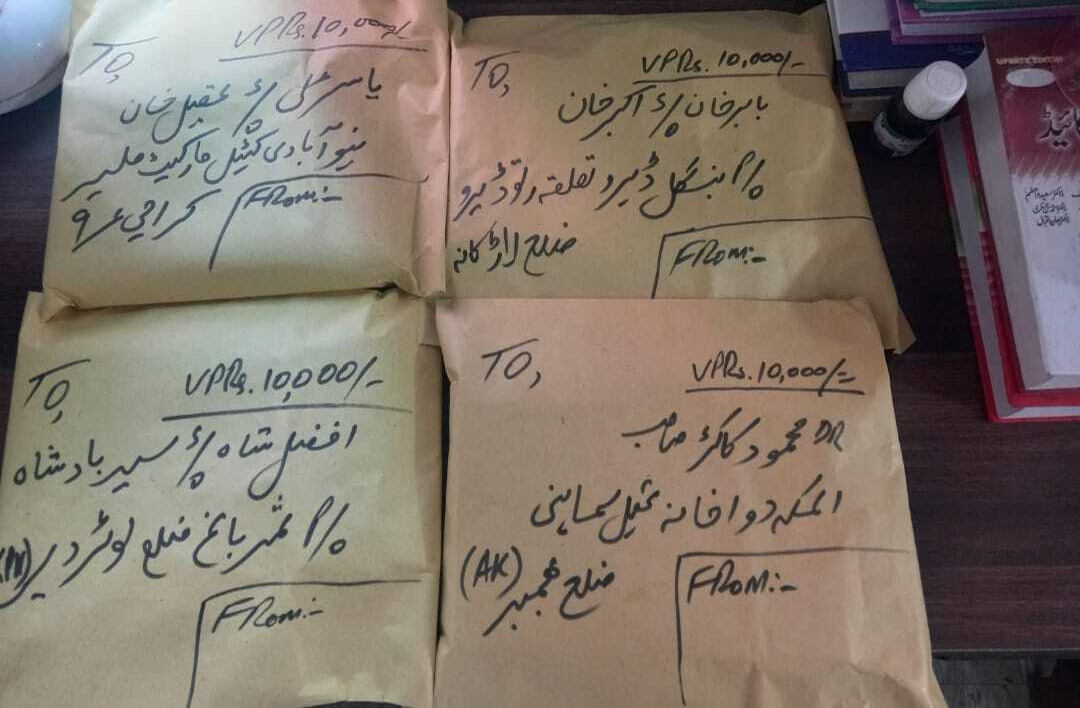 VPRs.10,000/-
TO,
یاسر علی S/o عقیل خان
نیو آبادی کیٹل مارکیٹ ملیر
کراچی
FROM:-
VPRs.10,000/-
TO,
بابر خان S/o اکبر خان
P/o بنگل ڈیرو تعلقہ رتو ڈیرو
ضلع لاڑکانہ
FROM:-
VPRs.10,000/-
TO,
افضل شاہ S/o سید بادشاہ
P/o ثمر باغ ضلع لوئر دیر
FROM:-
VPRs.10,000/=
TO,
DR محمود صاحب
المکہ دواخانہ سماہنی
ضلع بھمبر (AK)
FROM:-
گائیڈ